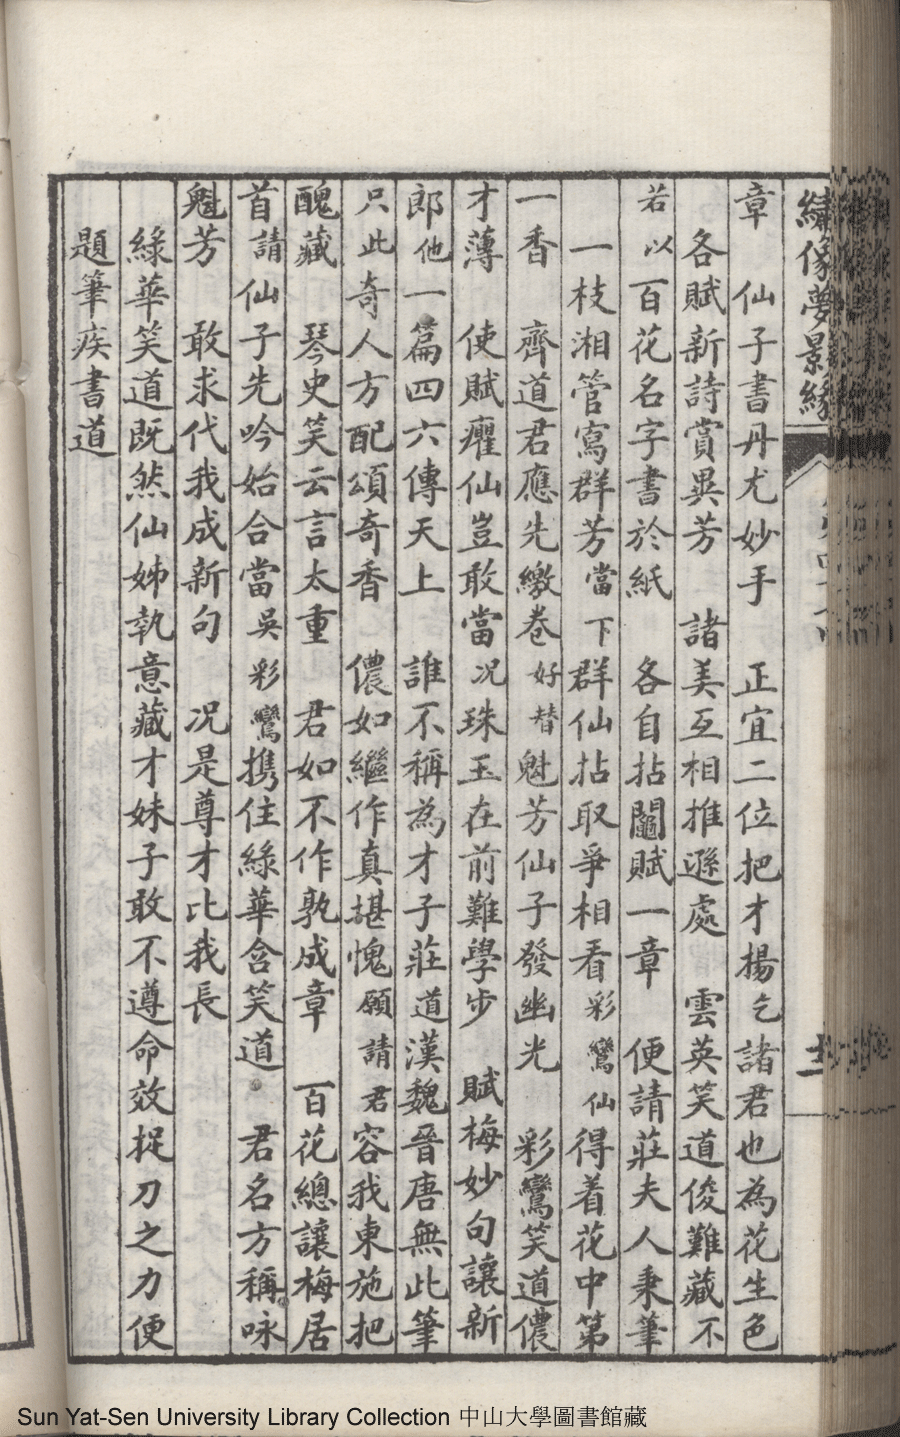 繡像夢景緣
章　仙子書丹尤妙手　正宜二位把才揚乞諸君也為花生色
各賦新詩賞異芳　諸美互相推遜處　雲英笑道俊難藏不
若以百花名字書於紙　各自拈鬮賦一章　便請莊夫人秉筆
一枝湘管寫群芳當下群仙拈取爭相看彩鸞仙得着花中第
一香　齊道君應先繳卷好替魁芳仙子發幽光　彩鸞笑道儂
才薄　使賦癯仙豈敢當况珠玉在前難學步　賦梅妙句讓新
郎他一篇四六傳天上　誰不稱為才子莊道漢魏晉唐無此筆
只此奇人方配頌奇香　儂如繼作真堪愧願請君容我東施把
醜藏　琴史笑云言太重　君如不作孰成章　百花總讓梅居
首請仙子先吟始合當吳彩鸞携住綠華含笑道　君名方稱咏
魁芳　敢求代我成新句　况是尊才比我長
綠華笑道既然仙姊執意藏才妹子敢不遵命效捉刀之力便
題筆疾書道
Sun Yat-Sen University Library Collection 中山大學圖書館藏